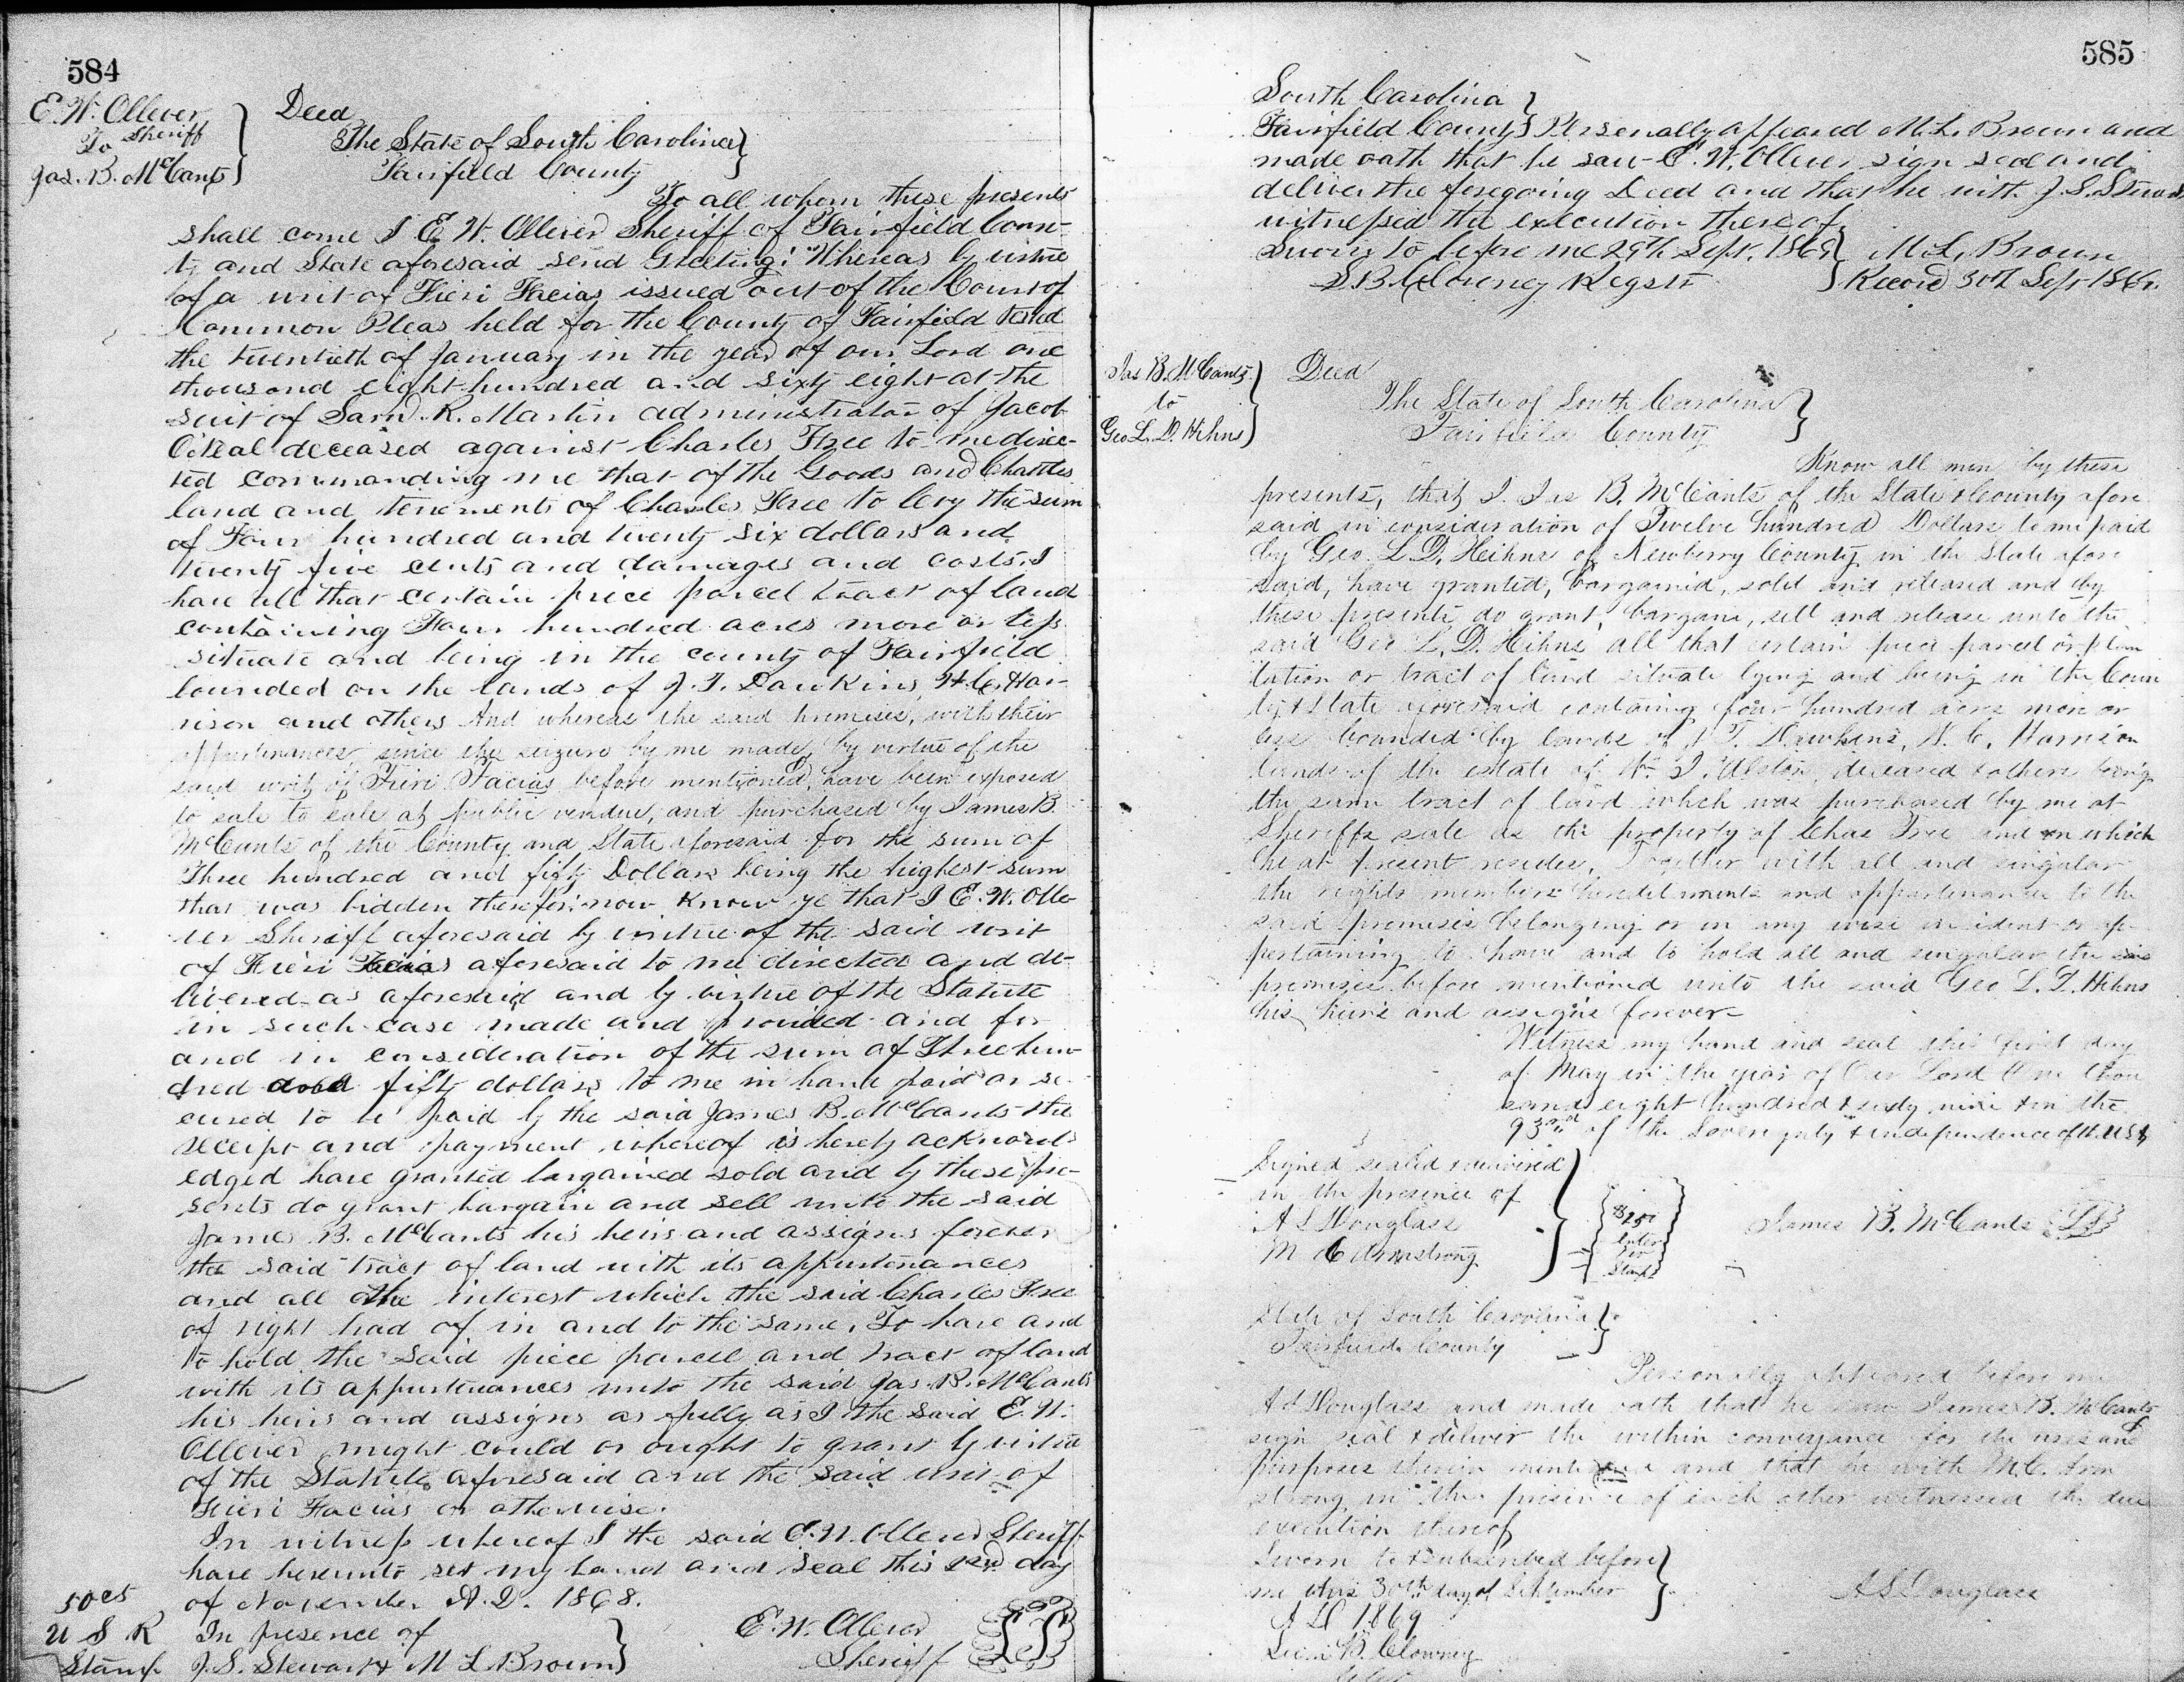 584
E. W. Ollever
Sheriff
To
Jas. B. McCants
Deed
The State of South Carolina
Fairfield County
To all whom these presents
shall come I E. W. Ollever Sheriff of Fairfield Coun-
ty and State aforesaid send Greeting: Whereas by virtue
of a writ of Fieri Facias issued out of the Court of
Common Pleas held for the County of Fairfield tested
the twentieth of January in the year of our Lord one
thousand eight hundred and sixty eight at the
suit of R. Martin administrator of Jacob
deceased against Charles Free to me direc-
ted commanding me that of the Goods and Chattles
land and tenements of Charles Free to levy the sum
of Four hundred and twenty six dollars and
twenty five cents and damages and costs. I
have all that certain piece parcel tract of land
containing Four hundred acres more or less
situate and being in the county of Fairfield
bounded on the lands of J. T. Dawkins, H. C. Har-
rison and others And whereas the said premises, with their
appurtenances, since the seizure by me made, by virtue of the
said writ of Fieri Facias before mentioned, have been exposed
to sale to sale at public vendue, and purchased by James B.
McCants of the County and State aforesaid for the sum of
Three hundred and fifty Dollars being the highest sum
that was bidden therefor: now know ye that I E. W. Olle-
ver Sheriff aforesaid by virtue of the said writ
of Fieri Facias aforesaid to me directed and de-
livered as aforesaid and by virtue of the Statute
in such case made and provided and for
and in consideration of the sum of Three hun-
dred and fifty dollars to me in hand paid or se-
cured to be paid by the said James B. McCants the
receipt and payment whereof is hereby acknowl-
edged have granted bargained sold and by these pre-
sents do grant bargain and sell unto the said
James B. McCants his heirs and assigns forever
the said tract of land with its appurtenances
and all the interest which the said Charles Free
of right had of in and to the same, To have and
to hold the said piece parcel and tract of land
with its appurtenances unto the said Jas. B. McCants
his heirs and assigns as fully as I the said E. W.
Ollever might could or ought to grant by virtue
of the Statute aforesaid and the said writ of
Fieri Facias or otherwise.
In witness whereof I the said E. W. Ollever Sheriff
have hereunto set my hand and seal this day
of November A. D. 1868.
50cts
U S R
Stamp
In presence of
J. S. Stewart & M L Brown
E. W. Ollever
Sheriff
585
South Carolina
Fairfield County Personally appeared M. L. Brown and
made oath that he saw E. W. Ollever sign seal and
deliver the foregoing Deed and that he with J. S. Stewart
witnessed the execution thereof.
Sworn to before me 29th Sept. 1869 M. L. Brown
S B Clowney Regstr Record 30th Sept 1869.
Jas B. McCants
to
Geo L. D. Hihns
Deed
The State of South Carolina
Fairfield County
Know all men by these
presents, that I Jas B. McCants of the State & County afore
said in consideration of Twelve hundred Dollars to me paid
by Geo. L. D. Heihns of Newberry County in the State afore
said, have granted, bargained, sold and released and by
these presents do grant, bargain, sell and release unto the
said Geo L. D. Hihns all that certain piece parcel or plan
tation or tract of land situate lying and being in the Coun
ty & State aforesaid containing four hundred acres more or
less bounded by lands of J T. Dawkins, H. C. Harrison
lands of the estate of Wm J. Alston, deceased & others being
the same tract of land which was purchased by me at
Sheriffs sale as the property of Chas Free and on which
he at present resides, Together with all and singular
the rights members hereditaments and appurtenances to the
said premises belonging or in any wise incident or ap-
pertaining to have and to hold all and singular the
premises before mentioned unto the said Geo L. D. Hihns
his heirs and assigns forever
Witness my hand and seal this first day
of May in the year of Our Lord One thou
sand eight hundred & sixty nine & in the
93rd of the Sovereignty & independence of the USA
Signed sealed & delivered
in the presence of
A S Douglass
M C Armstrong
Inter
Stamps
James B. McCants LS
State of South Carolina
Fairfield County
Personally appeared before me
A S Douglass and made oath that he saw James B. McCants
sign seal & deliver the within conveyance for the uses and
purposes therein mentioned and that he with M. C. Arm
strong in the presence of each other witnessed the due
execution thereof
Sworn to & subscribed before
me this 30th day of September
A D 1869
B. Clowney
A S Douglass